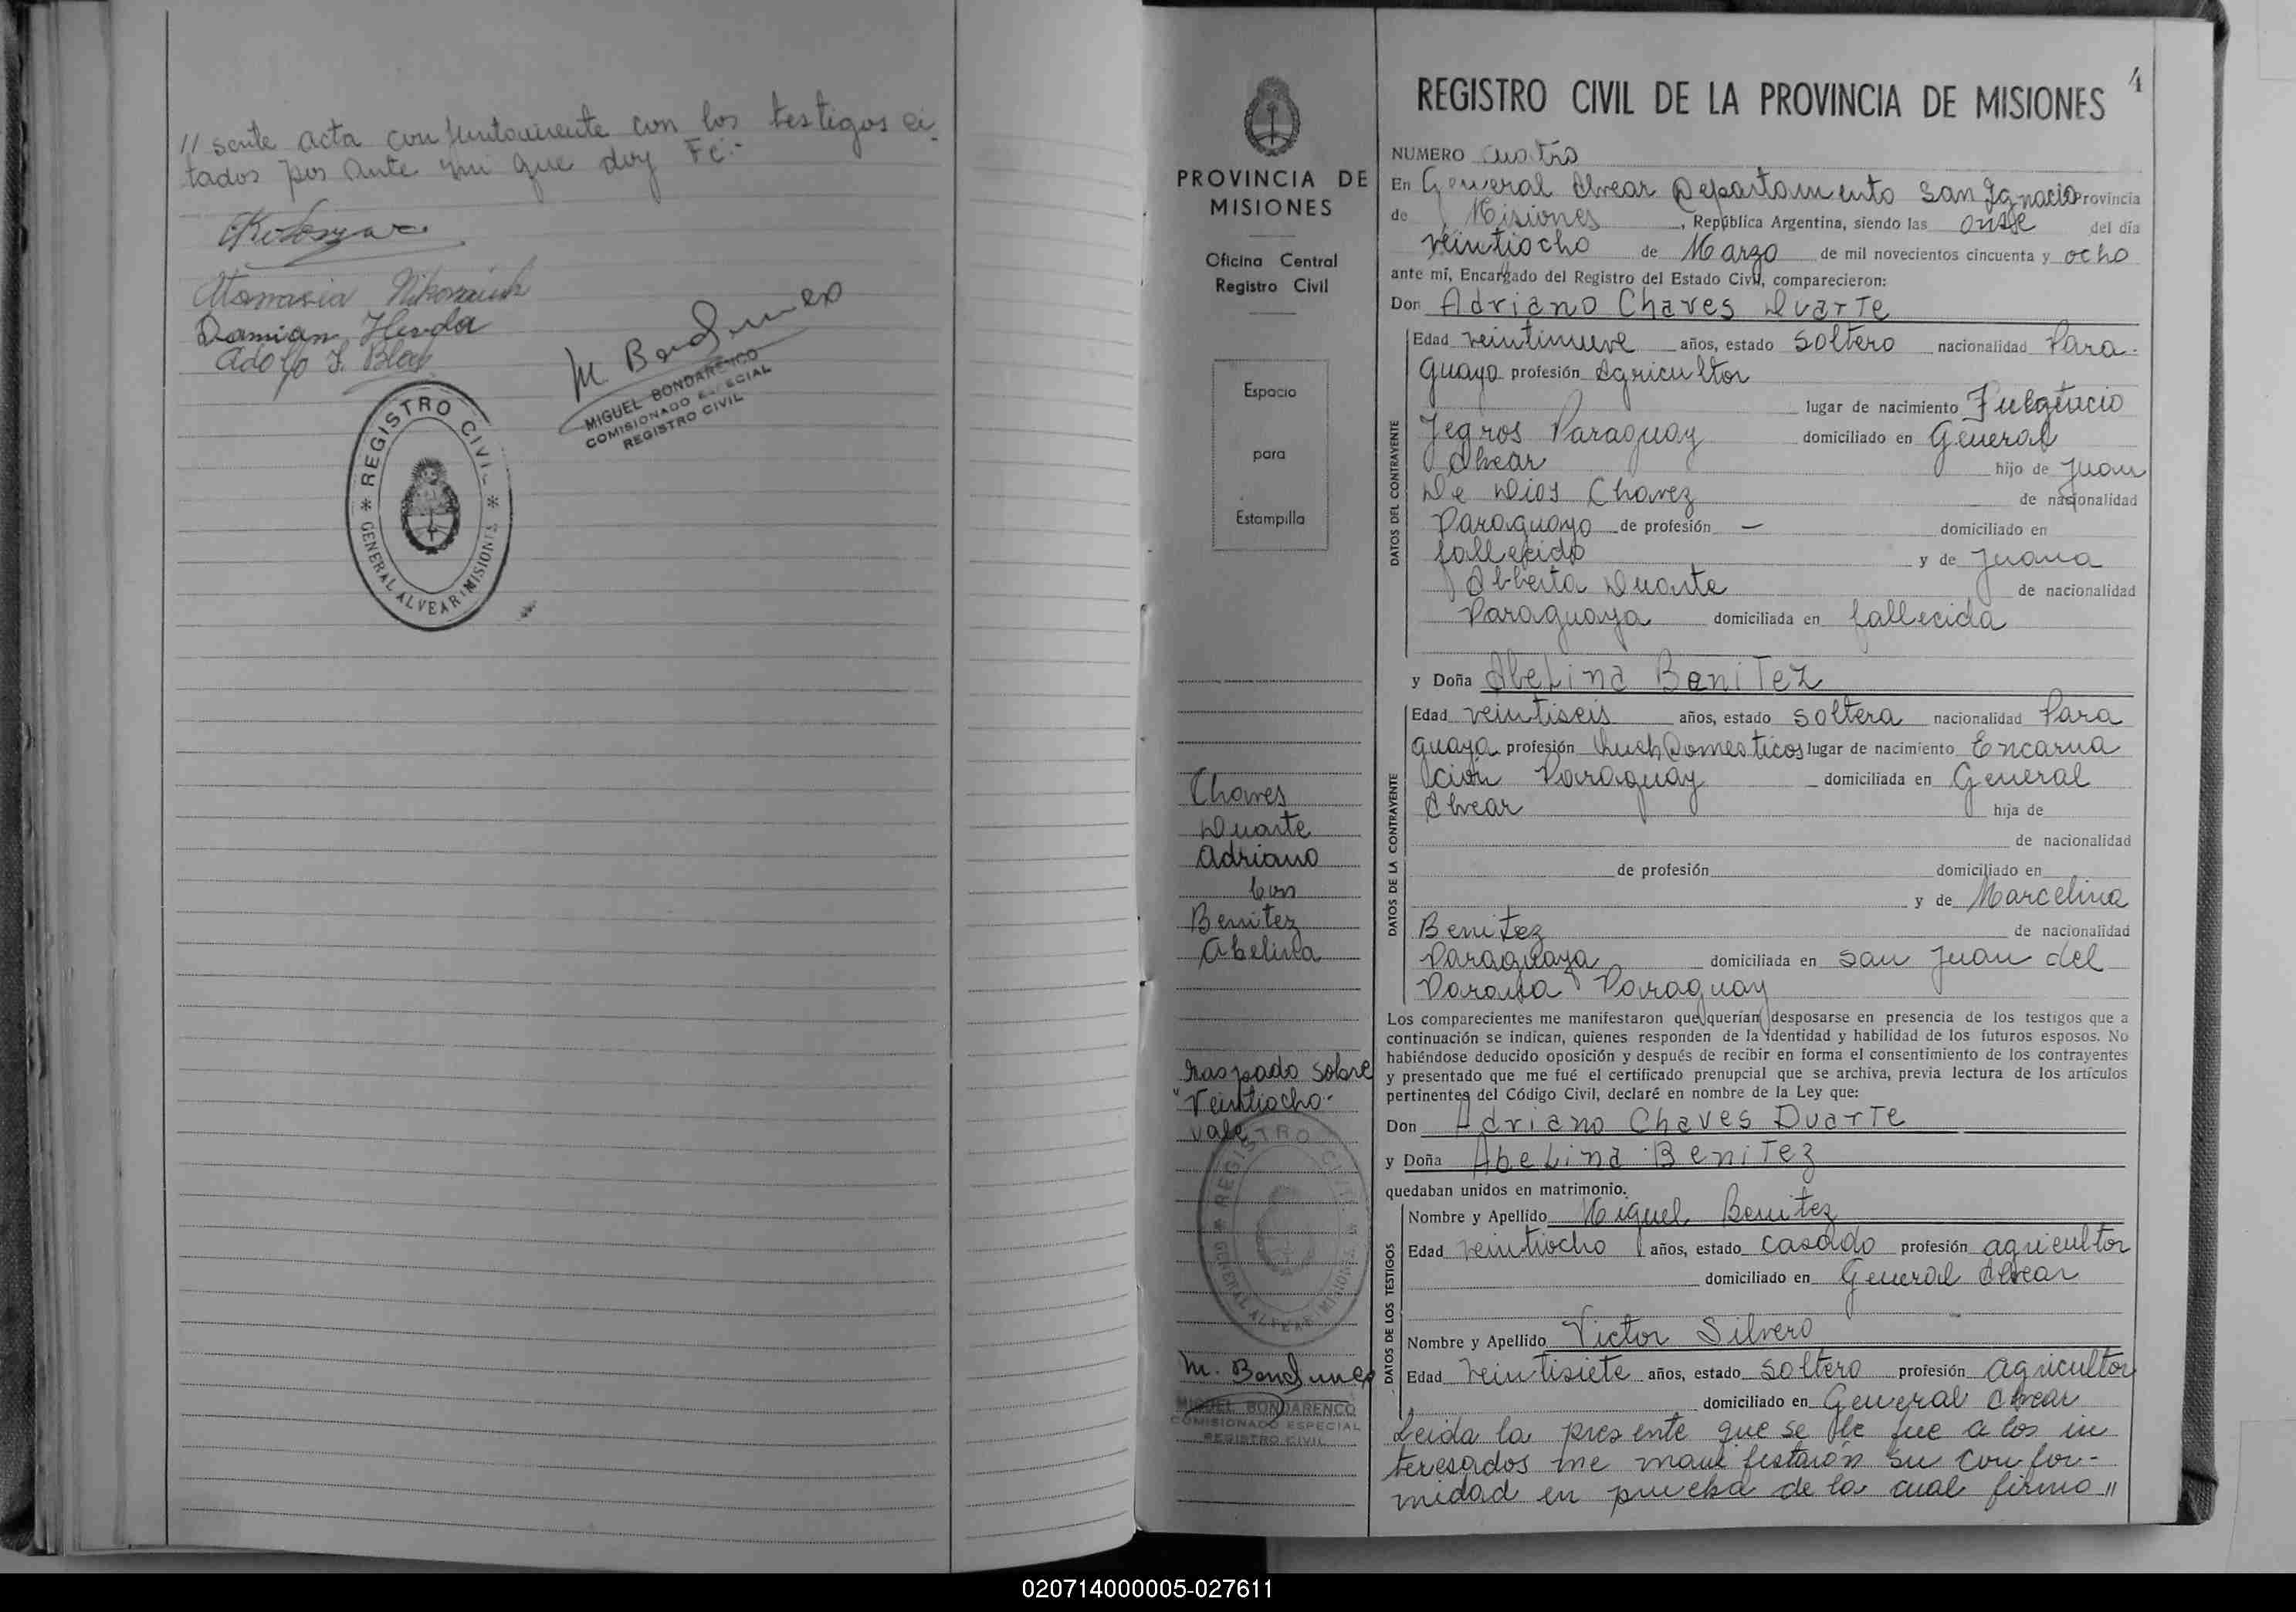 // sente acta conjuntamente con los testigos ci-
tados por ante mi que doy Fé.-
Damian
Adolfo
M Bondarenco
MIGUEL BONDARENCO
COMISIONADO ESPECIAL
REGISTRO CIVIL
* REGISTRO CIVIL *
GENERAL ALVEAR-MISIONES
PROVINCIA DE
MISIONES
Oficina Central
Registro Civil
Espacio
para
Estampilla
Chaves
Duarte
Adriano
con
Benitez
Abelina
Raspado sobre
"Veintiocho-
vale
* REGISTRO CIVIL *
GENERAL ALVEAR MISIONES
M. Bondarenco
MIGUEL BONDARENCO
COMISIONADO ESPECIAL
REGISTRO CIVIL
4
REGISTRO CIVIL DE LA PROVINCIA DE MISIONES
NUMERO cuatro
En General Alvear Departamento San Ignacio Provincia
de Misiones, República Argentina, siendo las onse del día
veintiocho de Marzo de mil novecientos cincuenta y ocho
ante mí, Encargado del Registro del Estado Civil, comparecieron:
Don Adriano Chaves Duarte
DATOS DEL CONTRAYENTE
Edad veintinueve años, estado soltero nacionalidad Para-
guayo profesión Agricultor
lugar de nacimiento Fulgencio
Yegros Paraguay domiciliado en General
Alvear hijo de Juan
De Dios Chavez de nacionalidad
Paraguayo de profesión — domiciliado en
fallecido y de Juana
Alberta Duarte de nacionalidad
Paraguaya domiciliada en fallecida
y Doña Abelina Benitez
DATOS DE LA CONTRAYENTE
Edad veintiseis años, estado soltera nacionalidad Para
guaya profesión Queh. Domesticos lugar de nacimiento Encarna
cion Paraguay domiciliada en General
Alvear hija de
de nacionalidad
de profesión domiciliado en
y de Marcelina
Benitez de nacionalidad
Paraguaya domiciliada en San Juan del
Parana Paraguay
Los comparecientes me manifestaron que querían desposarse en presencia de los testigos que a
continuación se indican, quienes responden de la identidad y habilidad de los futuros esposos. No
habiéndose deducido oposición y después de recibir en forma el consentimiento de los contrayentes
y presentado que me fué el certificado prenupcial que se archiva, previa lectura de los artículos
pertinentes del Código Civil, declaré en nombre de la Ley que:
Don Adriano Chaves Duarte
y Doña Abelina Benitez
quedaban unidos en matrimonio.
DATOS DE LOS TESTIGOS
Nombre y Apellido Miguel Benitez
Edad veintiocho años, estado casado profesión agricultor
domiciliado en General Alvear
Nombre y Apellido Victor Silvero
Edad veintisiete años, estado soltero profesión agricultor
domiciliado en General Alvear
Leida la presente que se le fue a los in
teresados me manifestarón su confor-
midad en prueba de la cual firmo //
020714000005-027611